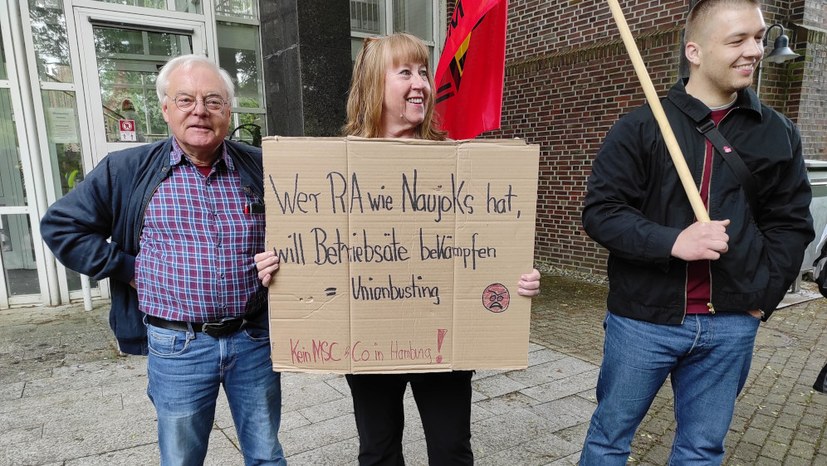 Wer RA wie Naujoks hat,
will Betriebsäte bekämpfen
= Unionbusting
Kein MSC & Co in Hamburg!